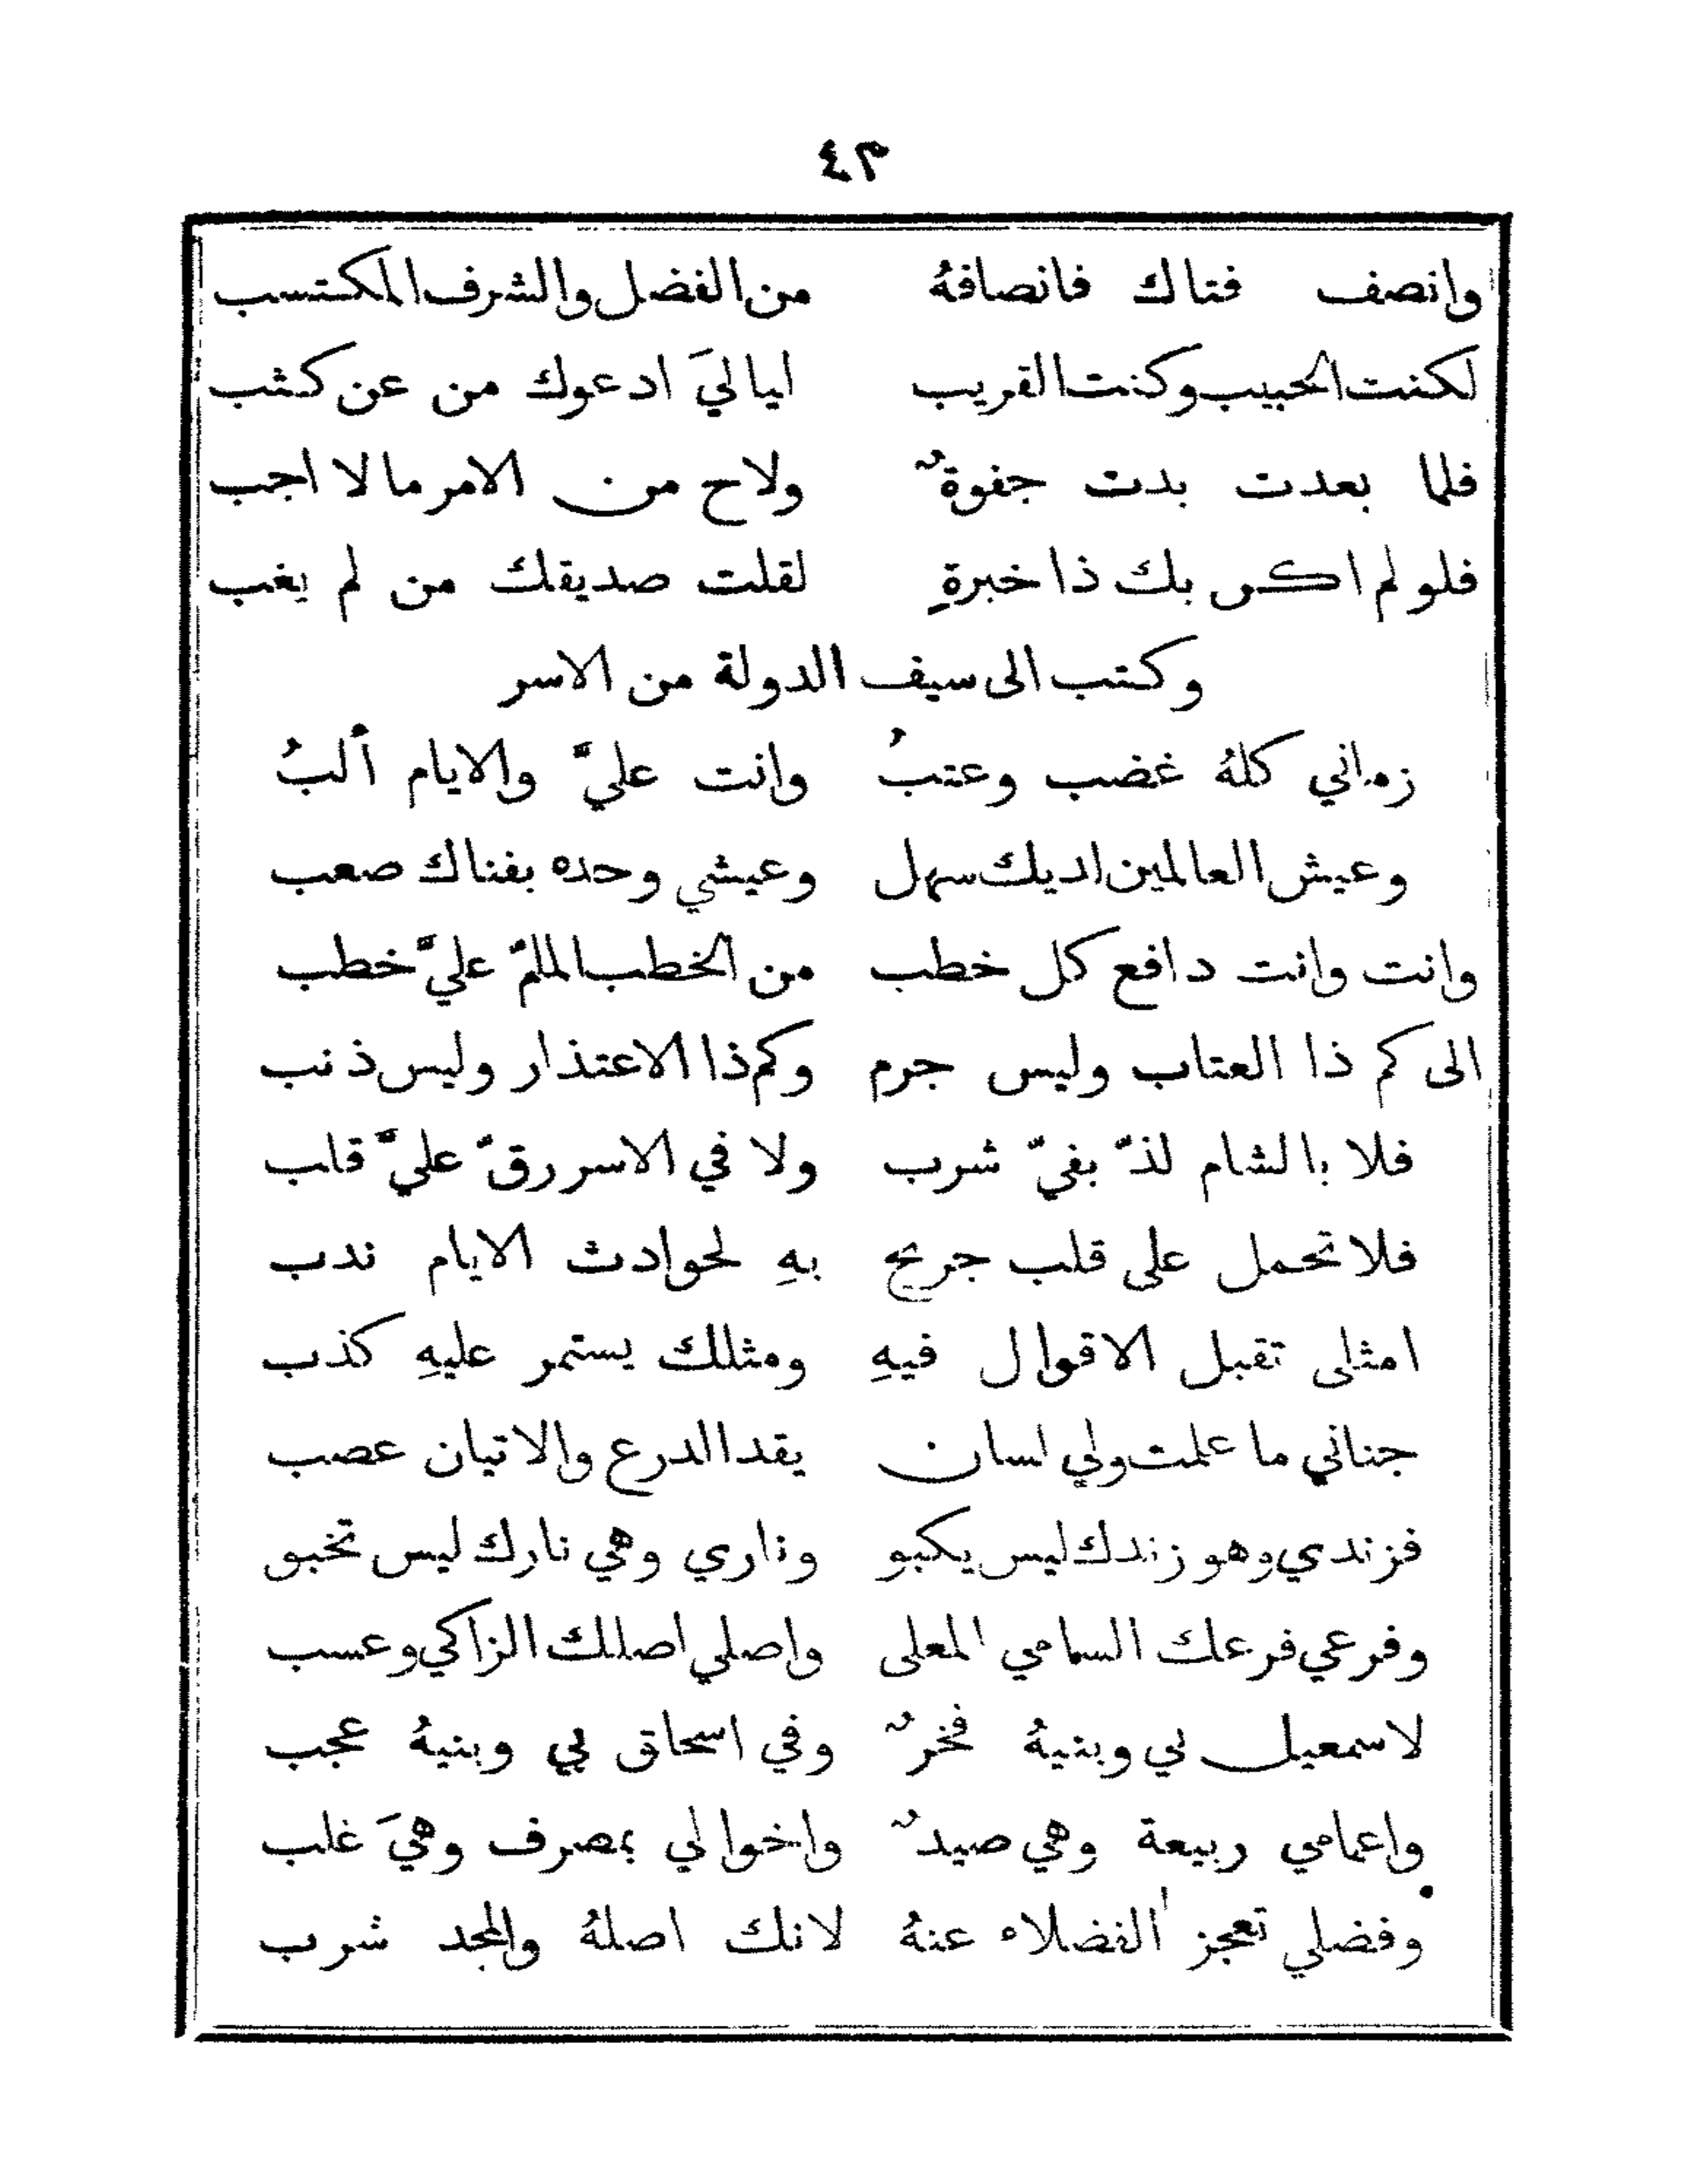 ٤٣
وانصف فتاك فانصافهُ من الفضل والشرف المكتسب
لكنت الحبيب وكنت القريب لياليَ ادعوك من عن كثب
فلما بعدت بدت جفوةٌ ولاح من الامر ما لا احب
فلو لم اكن بك ذا خبرةٍ لقلت صديقك من لم يغب
وكتب الى سيف الدولة من الاسر
زماني كلهُ غضب وعتبُ وانت عليَّ والايام ألبُ
وعيش العالمين لديك سهل وعيشي وحده بفناك صعب
وانت وانت دافع كل خطب من الخطب الملمّ عليَّ خطب
الى كم ذا العتاب وليس جرم وكم ذا الاعتذار وليس ذنب
فلا بالشام لذّ بفيّ شرب ولا في الاسر رقّ عليَّ قلب
فلا تحمل على قلب جريح بهِ لحوادث الايام ندب
امثلي تقبل الاقوال فيهِ ومثلك يستمر عليهِ كذب
جناني ما علمت ولي لسان يقد الدرع والاتيان عصب
فزندي وهو زندك ليس يكبو وناري وهي نارك ليس تخبو
وفرعي فرعك السامي المعلى واصلي اصلك الزاكي وعسب
لاسمعيل لي وبنيهُ فخرٌ وفي اسحاق لي وبنيهُ عجب
واعمامي ربيعة وهي صيدٌ واخوالي بمصرف وهيَ غلب
وفضلي تعجز الفضلاء عنهُ لانك اصلهُ والمجد شرب